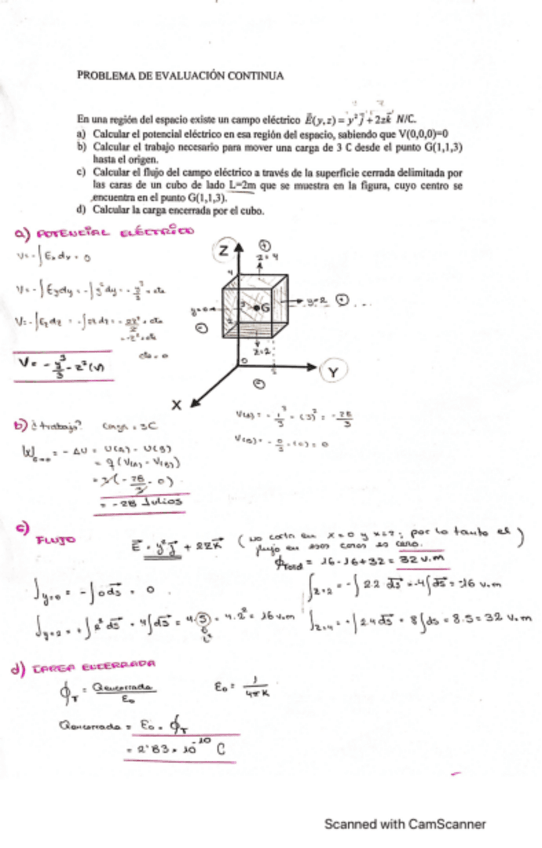 PROBLEMA DE EVALUACIÓN CONTINUA
En una región del espacio existe un campo eléctrico E⃗(y,z) = y² j⃗ + 2z k⃗ N/C.
a) Calcular el potencial eléctrico en esa región del espacio, sabiendo que V(0,0,0)=0
b) Calcular el trabajo necesario para mover una carga de 3 C desde el punto G(1,1,3)
hasta el origen.
c) Calcular el flujo del campo eléctrico a través de la superficie cerrada delimitada por
las caras de un cubo de lado L=2m que se muestra en la figura, cuyo centro se
encuentra en el punto G(1,1,3).
d) Calcular la carga encerrada por el cubo.
a) POTENCIAL ELÉCTRICO
V = -∫Eₓ dx = 0
V = -∫Ey dy = -∫y² dy = -y³/3 + cte
V = -∫Ez dz = -∫2z dz = -2z²/2 + cte
= -z² + cte
cte = 0
V = -y³/3 - z² (V)
Z
+
z=4
4
y=0
G
y=2 +
-
2
z=2
0
Y
-
X
b) ¿trabajo? carga = 3C
V(G) = -1³/3 - (3)² = -28/3
V(0) = -0/3 - (0) = 0
= -28 Julios
c) FLUJO
E⃗ = y² j⃗ + 2z k⃗ (no corta en x=0 y x=2; por lo tanto el
flujo en esas caras es cero.)
= 16 - 16 + 32 = 32 V.m
∫y=0 = -∫0 ds⃗ = 0
∫z=2 = -∫2·2 ds⃗ = -4∫ds⃗ = -16 V.m
∫y=2 = +∫2² ds⃗ = 4∫ds⃗ = 4·(S) = 4·2² = 16 V.m
L²
∫z=4 = +∫2·4 ds⃗ = 8∫ds = 8·S = 32 V.m
d) CARGA ENCERRADA
ϕT = Qencerrada/ε₀
ε₀ = 1/4πK
Qencerrada = ε₀ · ϕT
= 2'83 · 10⁻¹⁰ C
Scanned with CamScanner